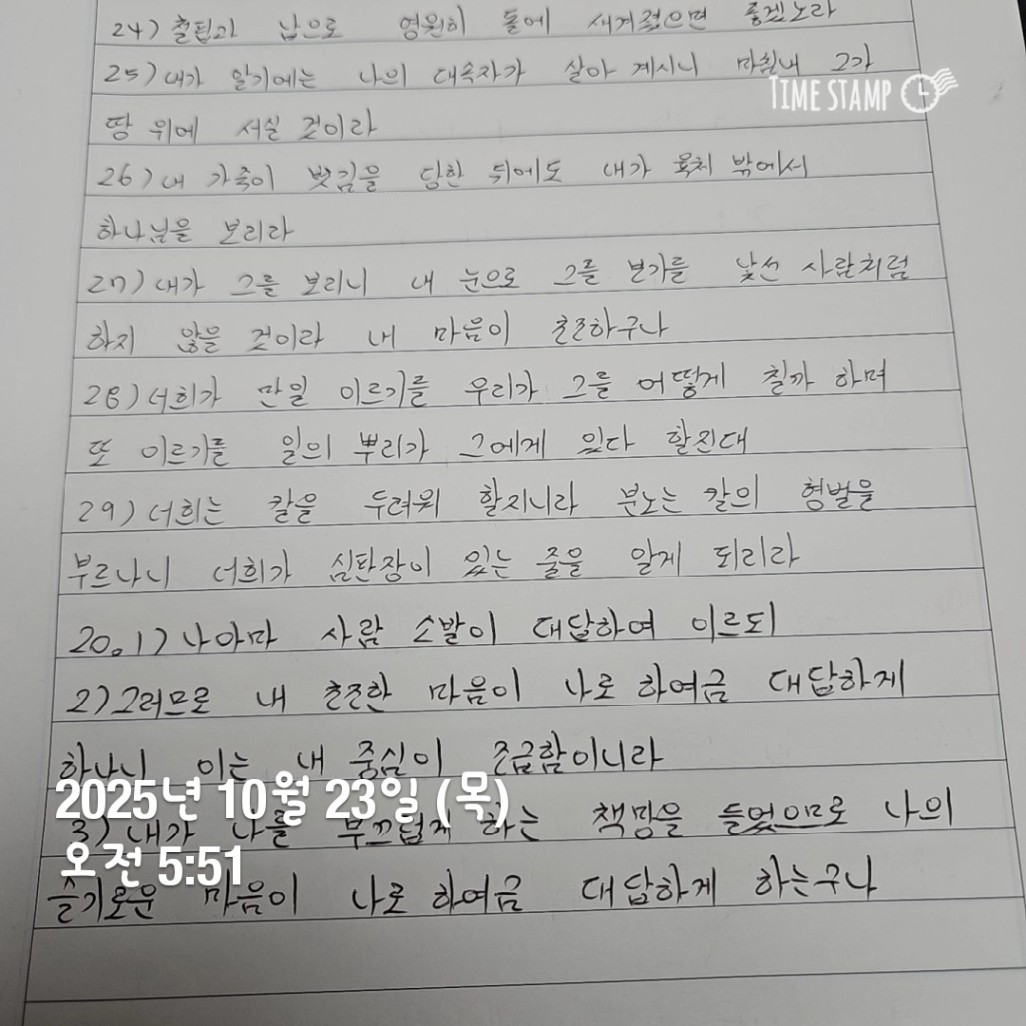 24) 철필과 납으로 영원히 돌에 새겨졌으면 좋겠노라
25) 내가 알기에는 나의 대속자가 살아 계시니 마침내 그가
TIME STAMP
땅 위에 서실 것이라
26) 내 가죽이 벗김을 당한 뒤에도 내가 육체 밖에서
하나님을 보리라
27) 내가 그를 보리니 내 눈으로 그를 보기를 낯선 사람처럼
하지 않을 것이라 내 마음이 초조하구나
28) 너희가 만일 이르기를 우리가 그를 어떻게 칠까 하며
또 이르기를 일의 뿌리가 그에게 있다 할진대
29) 너희는 칼을 두려워 할지니라 분노는 칼의 형벌을
부르나니 너희가 심판장이 있는 줄을 알게 되리라
20.1) 나아마 사람 소발이 대답하여 이르되
2) 그러므로 내 초조한 마음이 나로 하여금 대답하게
하나니 이는 내 중심이 조급함이니라
2025년 10월 23일 (목)
3) 내가 나를 부끄럽게 하는 책망을 들었으므로 나의
오전 5:51
슬기로운 마음이 나로 하여금 대답하게 하는구나